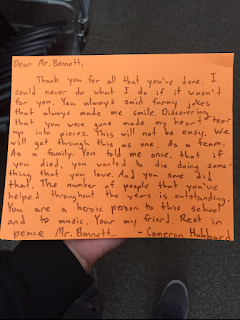 Dear Mr. Bennett,
Thank you for all that you've done. I
could never do what I do if it wasn't
for you. You always said funny jokes
that always made me smile. Discovering
that you were gone made my heart tear
up into pieces. This will not be easy. We
will get through this as one. As a team.
As a family. You told me once, that if
you died, you wanted to die doing some-
thing that you love. And you sure did
that. The number of people that you've
helped throughout the years is outstanding.
You are a heroic person to this school
and to music. Your my friend. Rest in
peace Mr. Bennett... - Cameron Hubbard